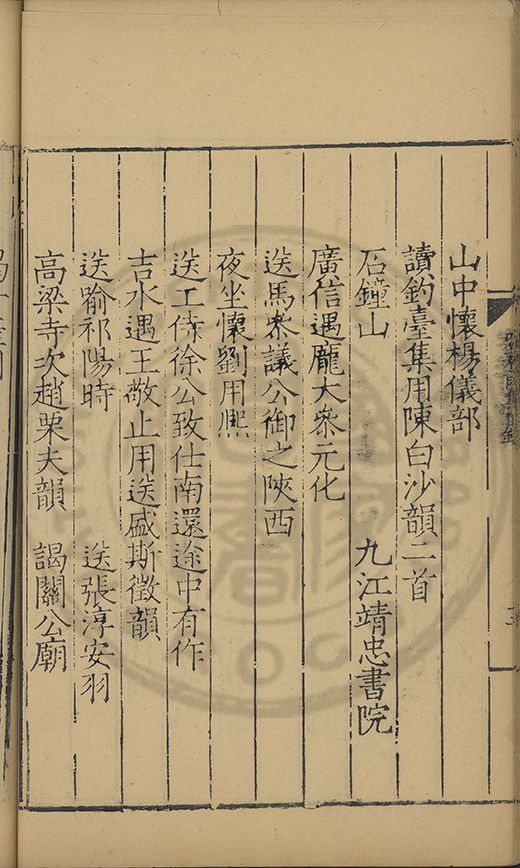 山中懷楊儀部
讀釣臺集用陳白沙韻二首
石鐘山　九江靖忠書院
廣信遇龐大叅元化
送馬叅議公御之陝西
夜坐懷劉用熙
送工侍徐公致仕南還途中有作
吉水遇王敬止用送盛斯徵韻
送喻祁陽時　送張淳安羽
高梁寺次趙栗夫韻　謁關公廟